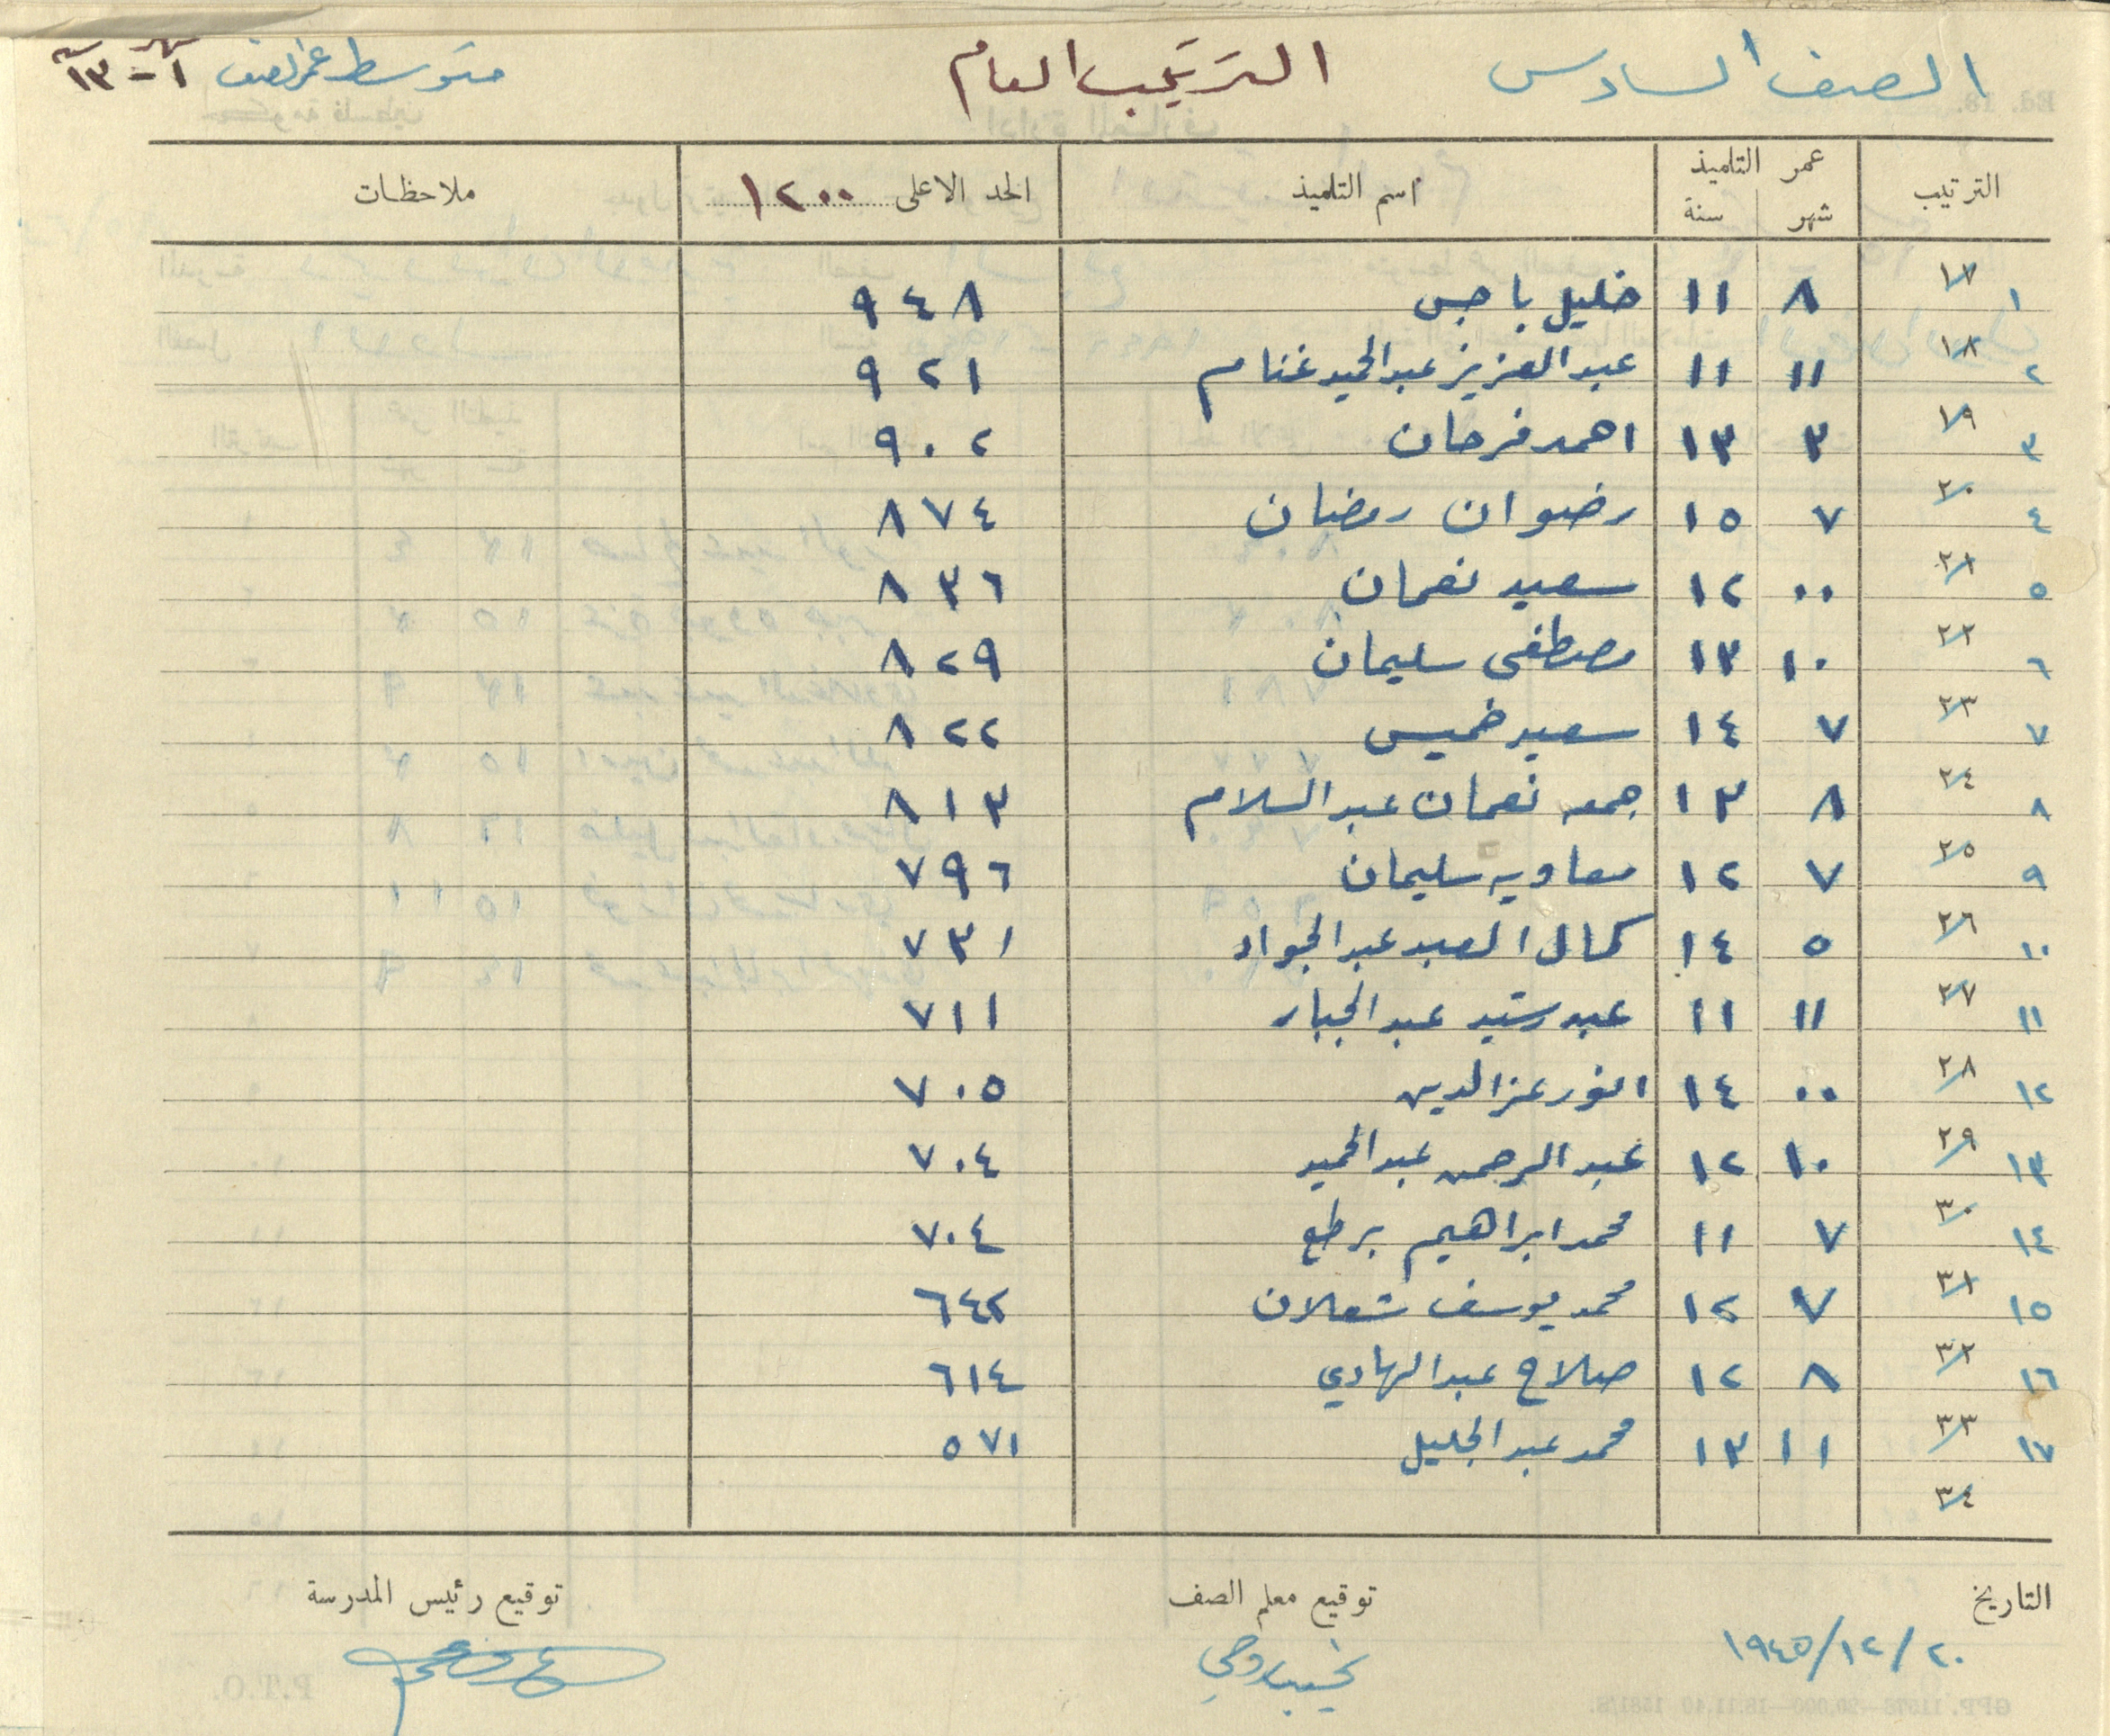 الصف السادس الترتيب العام متوسط عمر الصف شهر ١ - سنة ١٣
الترتيب عمر التلميذ اسم التلميذ الحد الاعلى ١٢٠٠ ملاحظات
شهر سنة
١ ١٧ ٨ ١١ خليل باجس ٩٤٨
٢ ١٨ ١١ ١١ عبد العزيز عبد الحميد غنام ٩٢١
٣ ١٩ ٣ ١٣ احمد فرحان ٩٠٢
٤ ٢٠ ٧ ١٥ رضوان رمضان ٨٧٤
٥ ٢١ ٠٠ ١٢ سعيد نعمان ٨٣٦
٦ ٢٢ ١٠ ١٣ مصطفى سليمان ٨٢٩
٧ ٢٣ ٧ ١٤ سعيد خميس ٨٢٢
٨ ٢٤ ٨ ١٣ جمعه نعمان عبد السلام ٨١٣
٩ ٢٥ ٧ ١٢ معاويه سليمان ٧٩٦
١٠ ٢٦ ٥ ١٤ كمال العبد عبد الجواد ٧٣١
١١ ٢٧ ١١ ١١ عبد رشيد عبد الجبار ٧١١
١٢ ٢٨ ٠٠ ١٤ انور عز الدين ٧٠٥
١٣ ٢٩ ١٠ ١٢ عبد الرحمن عبد الحميد ٧٠٤
١٤ ٣٠ ٧ ١١ محمد ابراهيم برطع ٧٠٤
١٥ ٣١ ٧ ١٢ محمد يوسف شعلان ٦٤٢
١٦ ٣٢ ٨ ١٢ صلاح عبد الهادي ٦١٤
١٧ ٣٣ ١١ ١٣ محمد عبد الجليل ٥٧١
٣٤
التاريخ توقيع معلم الصف توقيع رئيس المدرسة
٢٠/١٢/١٩٤٥